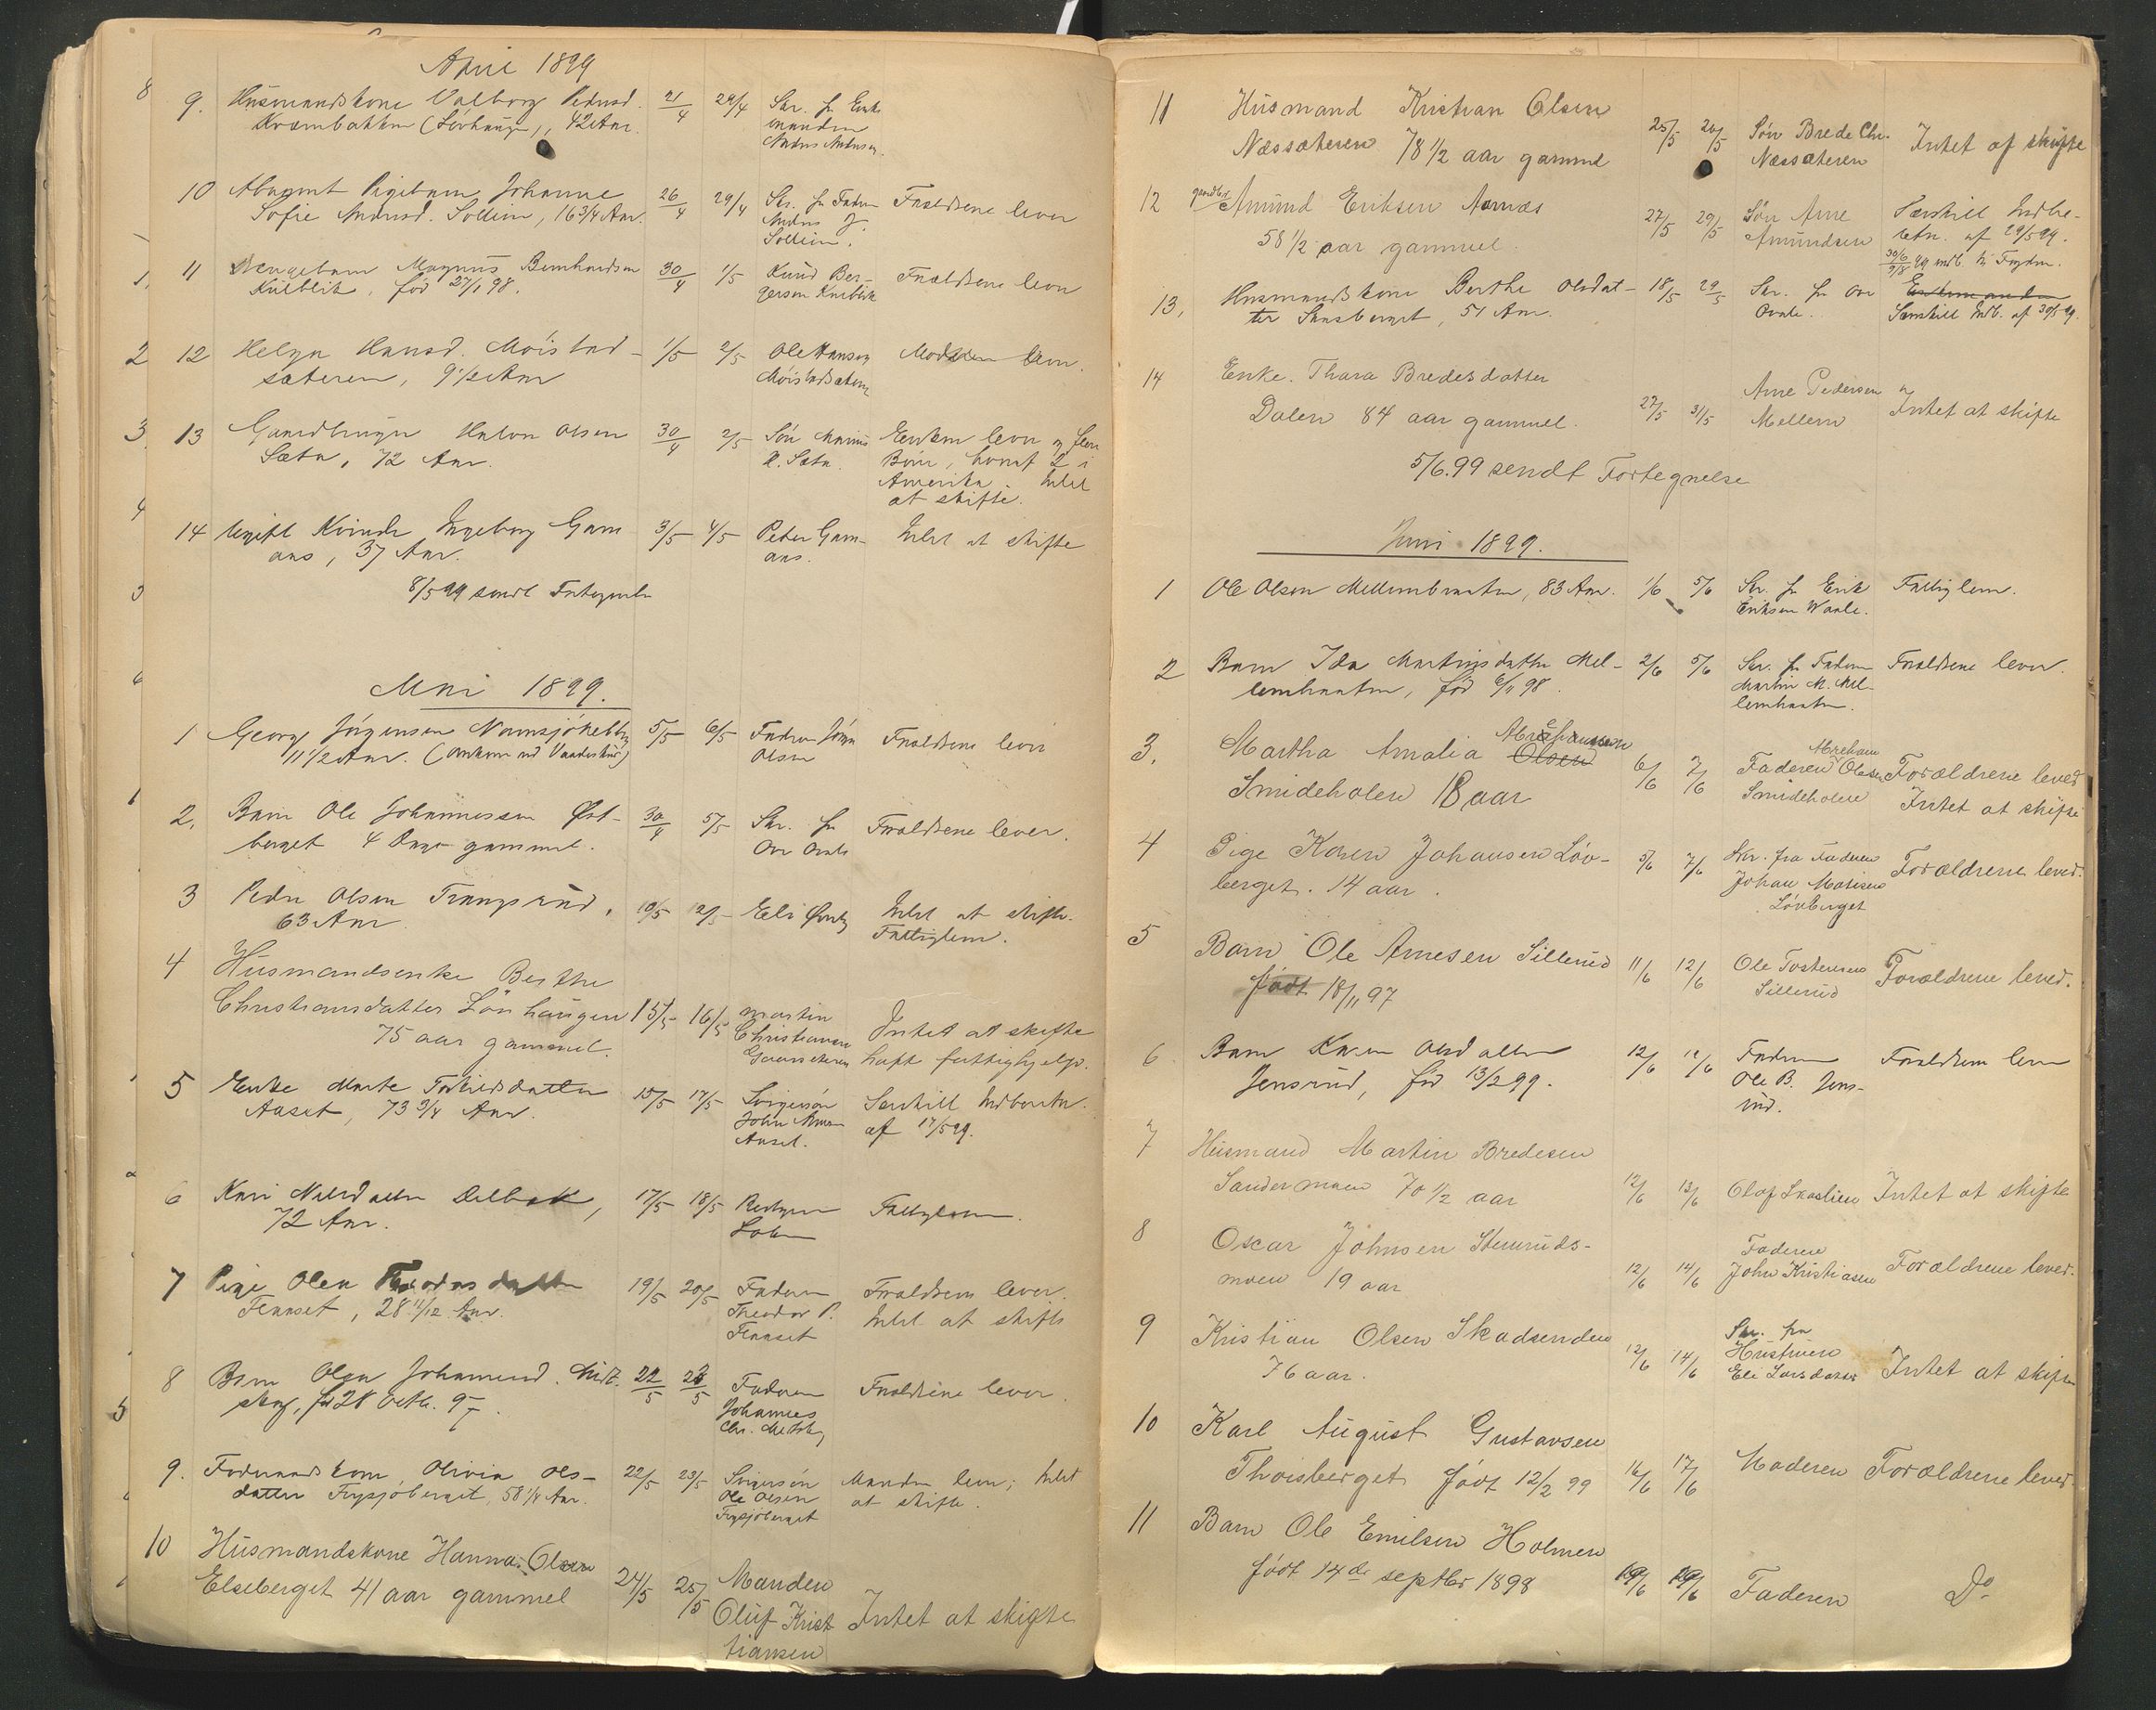 April 1899
9. Husmandskone Valborg Pedersd. 21/4 29/4 Skr. fr Enke
Kvernbakken (Løvhaugen), 42 Aar. manden
Andrus Andersen
10 Abnormt Pigebarn Johanne 26/4 29/4 Skr. fr Fadren Forældrene lever
Sofie Andersd. Sollien, 16 3/4 Aar. Andrus J.
Sollien.
11 Drengebarn Magnus Bernhardsen 30/4 1/5 Knud Ber- Forældrene lever
Kulblik, fød 27/1 98. gersen Kulblik
12 Helga Hansd. Moistad- 1/5 2/5 Ole Hansen Moderen lever.
sæteren, 9 1/2 Aar Moistadsæteren
13 Gaardbruger Halvor Olsen 30/4 2/5 Søn Marius Enken lever og flere
Sæter, 72 Aar. H. Sæter. Børn, hvoraf 2 i
Amerika. Intet
at skifte.
14 Ugift Kvinde Ingeborg Gam- 3/5 4/5 Peter Gam- Intet at skifte
aas, 37 Aar. aas.
8/5 99 sendt Fortegnelse
Mai 1899.
1 Georg Jørgensen 5/5 6/5 Fadren Jørgen Forældrene lever
11 1/2 Aar. (Omkom ved Vaadeskud) Olsen
2. Barn Ole Johannessen Øst- 30/4 5/5 Skr. fr Forældrene lever.
berget 4 Dage gammel. Ove Ovale
3 Peder Olsen Trangsrud, 10/5 12/5 Eli Intet at skifte.
63 Aar Fattiglem.
4 Husmandsenke Berthe
Christiansdatter Lönhaugen 15/5 16/5 Martin Intet at skifte
75 aar gammel. Christiansen haft fattighjelp.
5 Enke Marte Torkildsdatter 15/5 17/5 Svigersøn Særskilt Indberetn.
Aaset, 73 3/4 Aar. John af 17/5 99.
Aaset.
6 Kari Nilsdatter Delbæk, 17/5 18/5 Fattiglem.
72 Aar.
7 Pige Olea Theodorsdatter 19/5 20/5 Fadren Forældrene lever.
Flenaset, 28 11/12 Aar. Theodor P. Intet at skifte
Flenaset
8 Barn Olga Johannesd. Mit. 22/5 23/5 Fadren Forældrene lever.
skog, fød 28 Octb. 97. Johannes
Chr. Mitskog
9. Føderaadskone, Olivia Ols- 22/5 23/5 Svigersøn Manden lever; Intet
datter Frysjøberget, 58 1/4 Aar. Ole Olsen at skifte.
Frysjøberget
10 Husmandskone Hanna Olsen
Elseberget 41 aar gammel 24/5 25/5 Manden
Oluf Krist Intet at skifte
tiansen
11 Husmand Kristian Olsen
Næssæteren 78 1/2 aar gammel 25/5 26/5 Søn Brede Chr. Intet at skifte
Næssæteren
12 gaardbr. Amund Eriksen Aarnæs 27/5 29/5 Søn Arne Særskilt Indbe-
58 1/2 aar gammel. Amundsen retn. af 29/5 99.
13, Husmandskone Berthe Olsdat- 18/5 29/5 Skr. fr Ove Enkemanden
ter Snasberget, 51 Aar. Ovale. Særskilt Indb. af 30/5 99.
14 Enke. Thara Bredesdatter
Dalen 84 aar gammel. 27/5 31/5 Arne Pedersen Intet at skifte
Mellem
5/6.99 sendt Fortegnelse
Juni 1899.
1 Ole Olsen Mellembraaten, 83 Aar. 1/6 5/6 Skr. fr Erik Fattiglem.
Eriksen Waale.
2 Barn Ida Martinsdatter Mel- 2/6 5/6 Skr. fr Fadren Forældrene lever.
lembraaten, fød 6/11 98. Martin M. Mel-
lembraaten.
3. Martha Amalia Olsen Abrahamsen 6/6 7/6 Faderen Abraham Olesen Forældrene lever
Smideholen 18 aar Smideholen Intet at skifte
4 Pige Karen Johansen Løv- 5/6 7/6 Skr. fra Faderen Forældrene lever.
berget. 14 aar. Johan Matisen
Løvberget
5 Barn Ole Arnesen Sillerud 11/6 12/6 Ole Tostensen Forældrene lever.
født 18/11 97 Sillerud
6 Barn Karen Olsdatter 12/6 12/6 Fadren Forældrene lever
Jensrud, fød 13/2 99. Ole B. Jens-
rud.
7 Husmand Martin Bredesen
Sandermoen 70 1/2 aar 12/6 13/6 Olaf Skaslien Intet at skifte
8 Oscar Johnsen Stenruds- 12/6 14/6 Faderen Forældrene lever.
moen 19 aar John Kristiansen
9 Kristian Olsen Skadsenden 12/6 14/6 Skr. fra Intet at skifte
76 aar. Hustruen
Eli Larsdatter
10 Karl August Gustavsen
Thoisberget født 12/2 99 16/6 17/6 Moderen Forældrene lever.
11 Barn Ole Emilsen Holmen
født 14de septbr 1898 19/6 19/6 Faderen Do